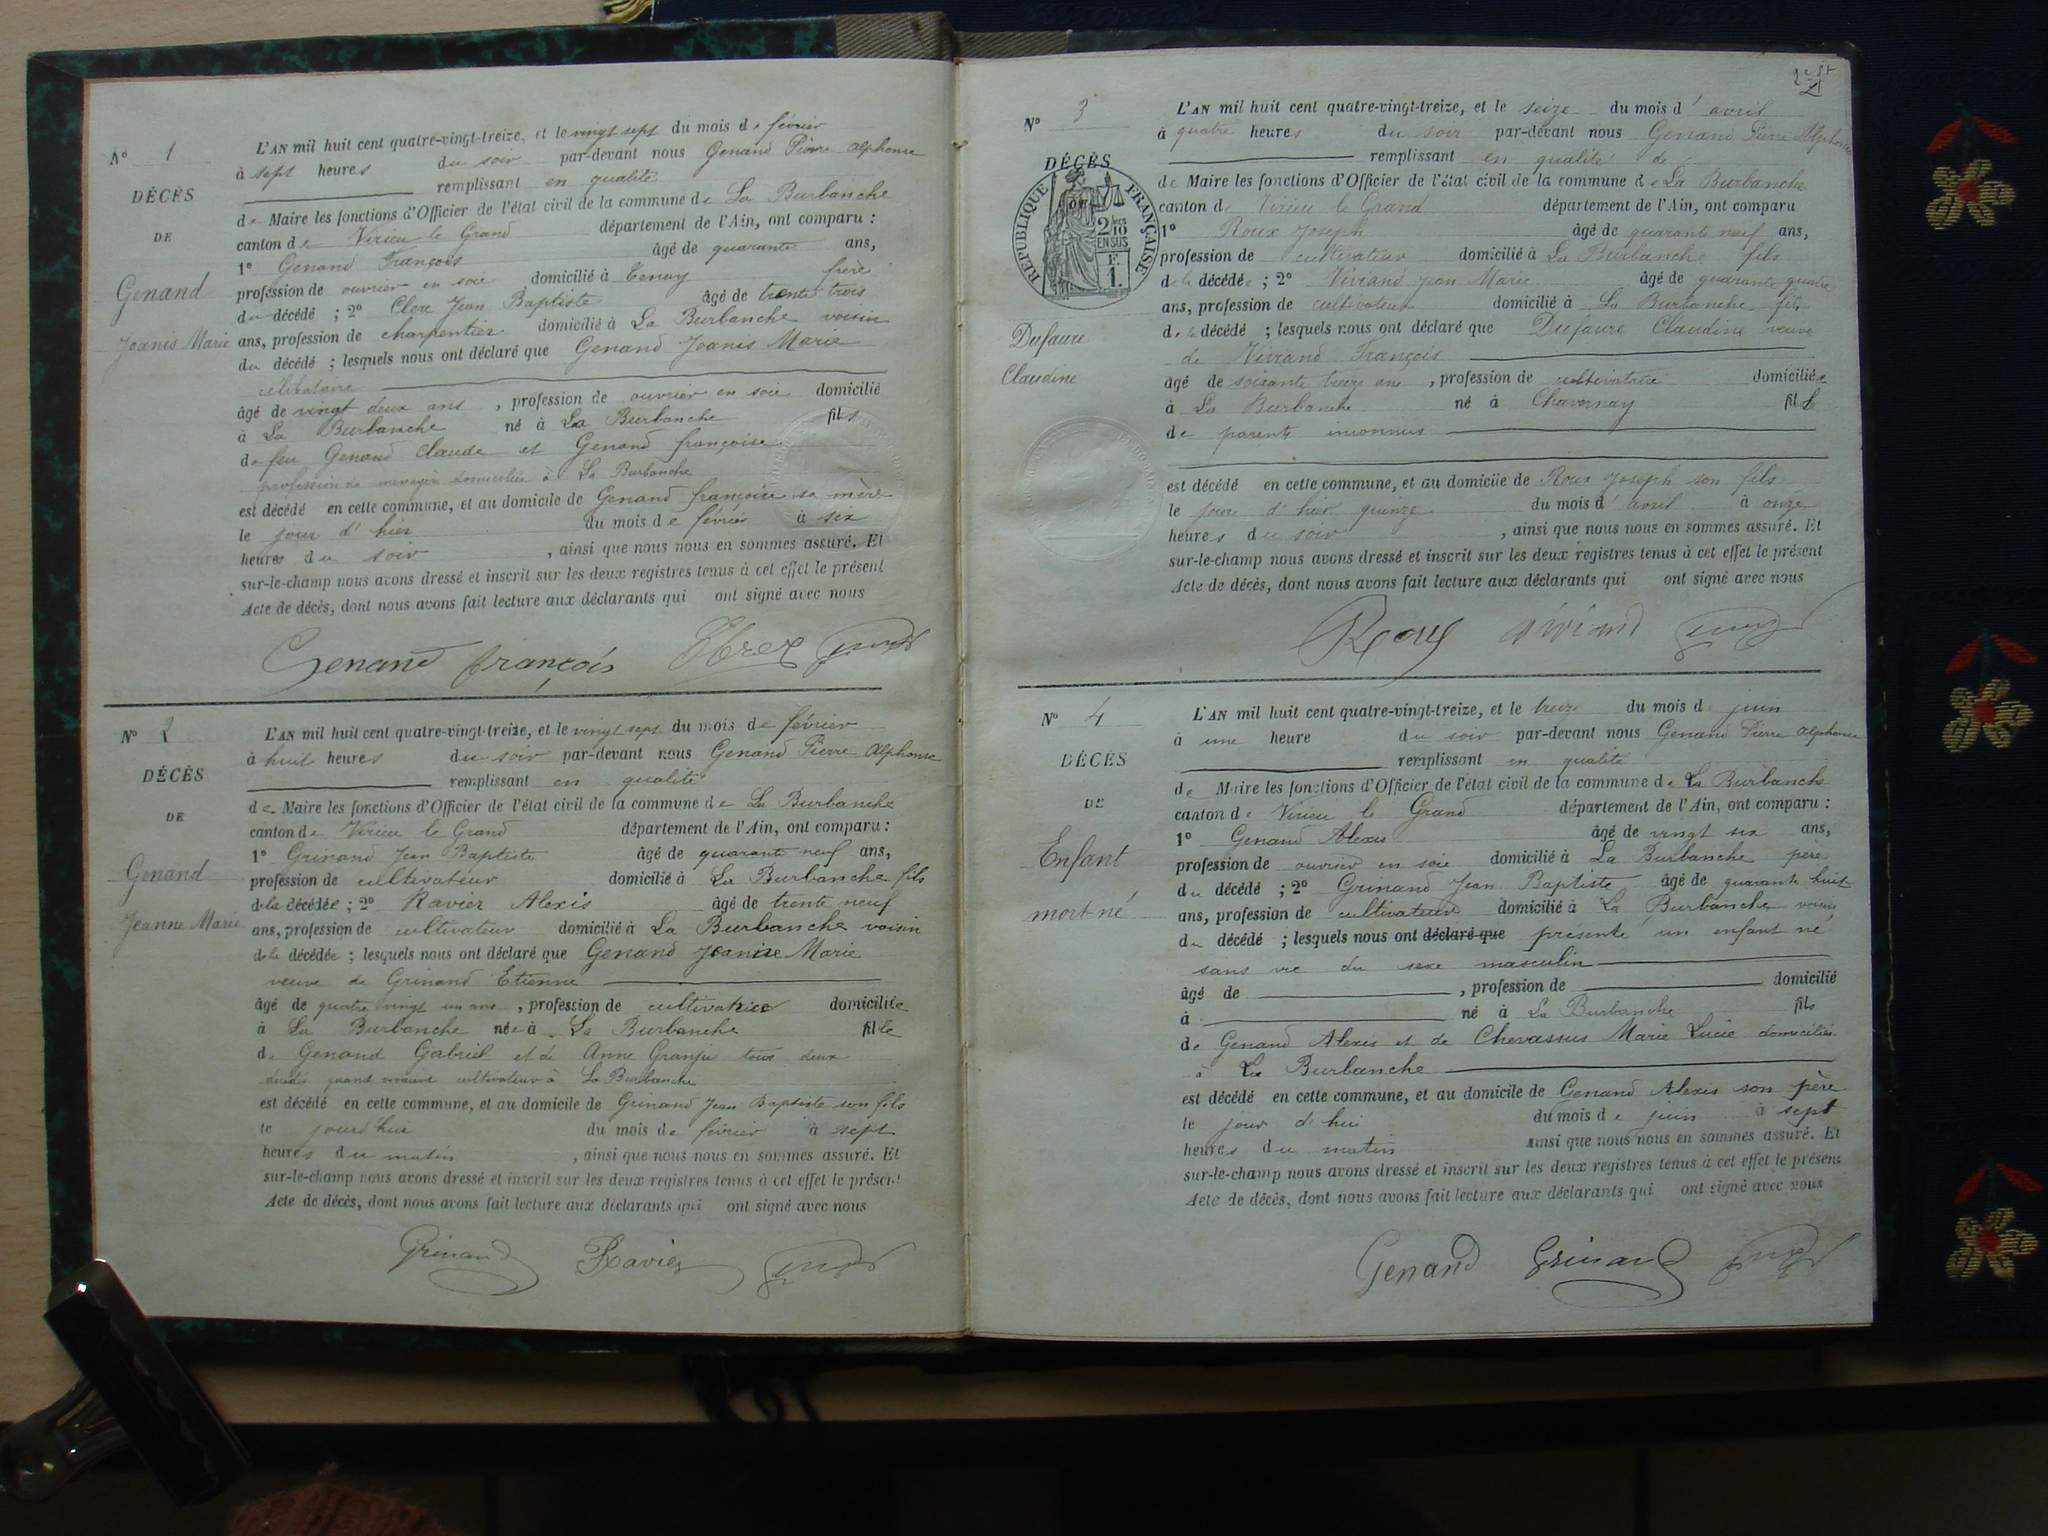 Nº 1
DÉCÈS
DE
Genand
Joanis Marie
L'AN mil huit cent quatre-vingt-treize, et le vingt sept du mois de février
à sept heures du soir par-devant nous Genand Pierre Alphonse
remplissant en qualité
de Maire les fonctions d'Officier de l'état civil de la commune de La Burbanche
canton de Virieu le Grand département de l'Ain, ont comparu :
1º Genand François âgé de quarante ans,
profession de ouvrier en soie domicilié à Tenay frère
du décédé ; 2º Jean Baptiste âgé de trente trois
ans, profession de charpentier domicilié à La Burbanche voisin
du décédé ; lesquels nous ont déclaré que Genand Joanis Marie
célibataire
âgé de vingt deux ans , profession de ouvrier en soie domicilié
à La Burbanche né à La Burbanche fils
de feu Genand Claude et Genand françoise
profession de ménagère domiciliée à La Burbanche
est décédé en cette commune, et au domicile de Genand françoise sa mère
le jour d'hier du mois de février à six
heures du soir , ainsi que nous nous en sommes assuré. Et
sur-le-champ nous avons dressé et inscrit sur les deux registres tenus à cet effet le présent
Acte de décès, dont nous avons fait lecture aux déclarants qui ont signé avec nous
Genand françois
Nº 2
DÉCÈS
DE
Genand
Jeanne Marie
L'AN mil huit cent quatre-vingt-treize, et le vingt sept du mois de février
à huit heures du soir par-devant nous Genand Pierre Alphonse
remplissant en qualité
de Maire les fonctions d'Officier de l'état civil de la commune de La Burbanche
canton de Virieu le Grand département de l'Ain, ont comparu :
1º Grinand Jean Baptiste âgé de quarante neuf ans,
profession de cultivateur domicilié à La Burbanche fils
de la décédée ; 2º Ravier Alexis âgé de trente neuf
ans, profession de cultivateur domicilié à La Burbanche voisin
de la décédée ; lesquels nous ont déclaré que Genand Marie
veuve de Grinand Etienne
âgé de quatre vingt un ans , profession de cultivatrice domiciliée
à La Burbanche née à La Burbanche fille
de Genand Gabriel et de Anne Granju tous deux
décédés quand vivaient cultivateur à La Burbanche
est décédé en cette commune, et au domicile de Grinand Jean Baptiste son fils
le jourdhui du mois de février à sept
heures du matin , ainsi que nous nous en sommes assuré. Et
sur-le-champ nous avons dressé et inscrit sur les deux registres tenus à cet effet le présent
Acte de décès, dont nous avons fait lecture aux déclarants qui ont signé avec nous
Grinand Ravier
Nº 3
DÉCÈS
RÉPUBLIQUE FRANÇAISE
2/10
EN SUS
F.
1.
Dufaure
Claudine
L'AN mil huit cent quatre-vingt-treize, et le seize du mois d'avril
à quatre heures du soir par-devant nous Genand Pierre Alphonse
remplissant en qualité de
de Maire les fonctions d'Officier de l'état civil de la commune de La Burbanche
canton de Virieu le Grand département de l'Ain, ont comparu
1º Roux Joseph âgé de quarante neuf ans,
profession de cultivateur domicilié à La Burbanche fils
de la décédée ; 2º Viviand Jean Marie âgé de quarante quatre
ans, profession de cultivateur domicilié à La Burbanche fils
de la décédé ; lesquels nous ont déclaré que Dufaure Claudine veuve
de Viviand François
âgé de soixante treize ans , profession de cultivatrice domiciliée
à La Burbanche né à Chavornay fille
de parents inconnus
est décédé en cette commune, et au domicile de Roux Joseph son fils
le jour d'hier quinze du mois d'avril à onze
heures du soir , ainsi que nous nous en sommes assuré. Et
sur-le-champ nous avons dressé et inscrit sur les deux registres tenus à cet effet le présent
Acte de décès, dont nous avons fait lecture aux déclarants qui ont signé avec nous
Roux viviand
Nº 4
DÉCÈS
DE
Enfant
mort-né
L'AN mil huit cent quatre-vingt-treize, et le treize du mois de juin
à une heure du soir par-devant nous Genand Pierre Alphonse
remplissant en qualité
de Maire les fonctions d'Officier de l'état civil de la commune de La Burbanche
canton de Virieu le Grand département de l'Ain, ont comparu :
1º Genand Alexis âgé de vingt six ans,
profession de ouvrier en soie domicilié à La Burbanche père
du décédé ; 2º Grinand Jean Baptiste âgé de quarante huit
ans, profession de cultivateur domicilié à La Burbanche voisin
du décédé ; lesquels nous ont déclaré que présenté un enfant né
sans vie du sexe masculin
âgé de , profession de domicilié
à né à La Burbanche fils
de Genand Alexis et de Chevassus Marie Lucie domiciliés
à La Burbanche
est décédé en cette commune, et au domicile de Genand Alexis son père
le jour d'hui du mois de juin à sept
heures du matin ainsi que nous nous en sommes assuré. Et
sur-le-champ nous avons dressé et inscrit sur les deux registres tenus à cet effet le présent
Acte de décès, dont nous avons fait lecture aux déclarants qui ont signé avec nous
Genand Grinand